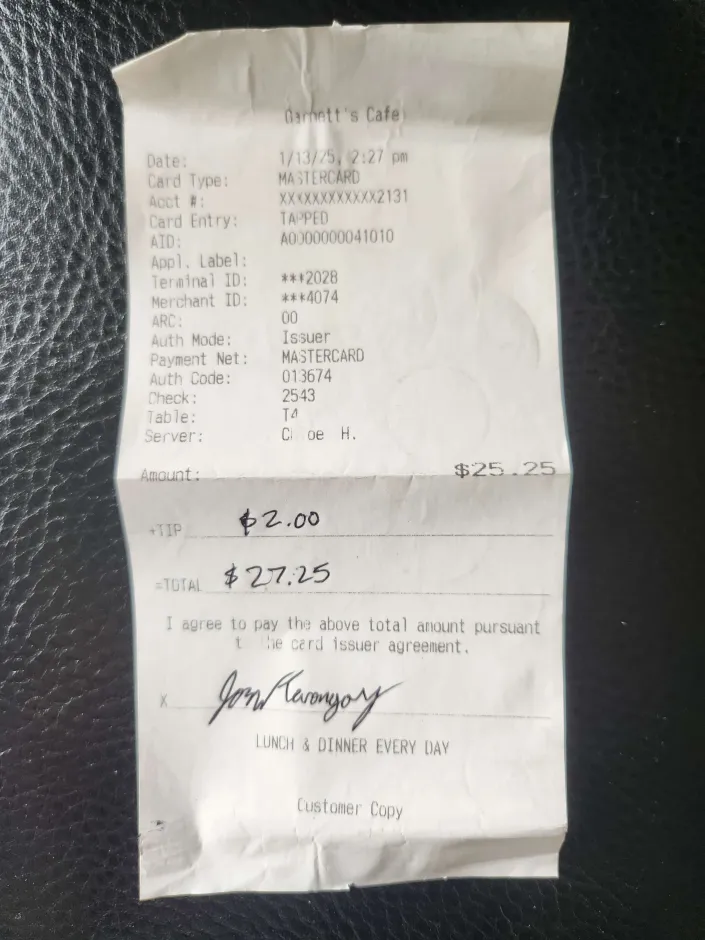 Garnett's Cafe
Date: 1/13/25, 2:27 pm
Card Type: MASTERCARD
Acct #: XXXXXXXXXXXX2131
Card Entry: TAPPED
AID: A0000000041010
Appl. Label:
Terminal ID: ***2028
Merchant ID: ***4074
ARC: 00
Auth Mode: Issuer
Payment Net: MASTERCARD
Auth Code: 013674
Check: 2543
Table: T4
Server: C oe H.
Amount: $25.25
+TIP $2.00
=TOTAL $27.25
I agree to pay the above total amount pursuant
t he card issuer agreement.
X
LUNCH & DINNER EVERY DAY
Customer Copy